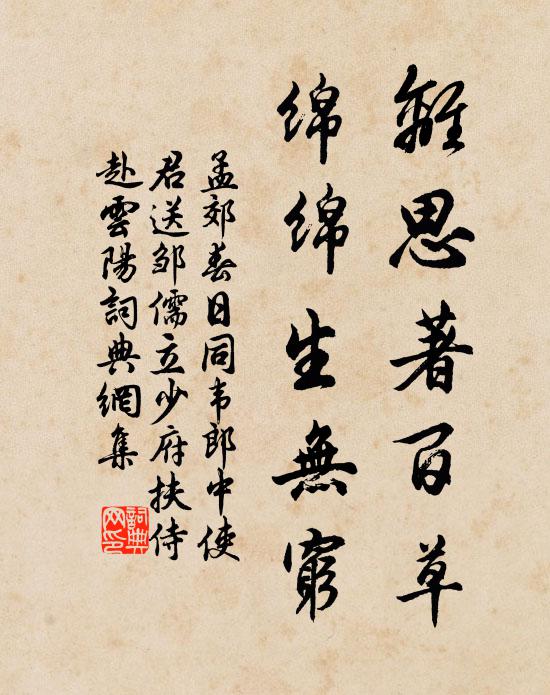 離思著百草
綿綿生無窮
孟郊春日同韦郎中使
君送邹儒立少府扶侍
赴雲陽詞典網集
詞典网印